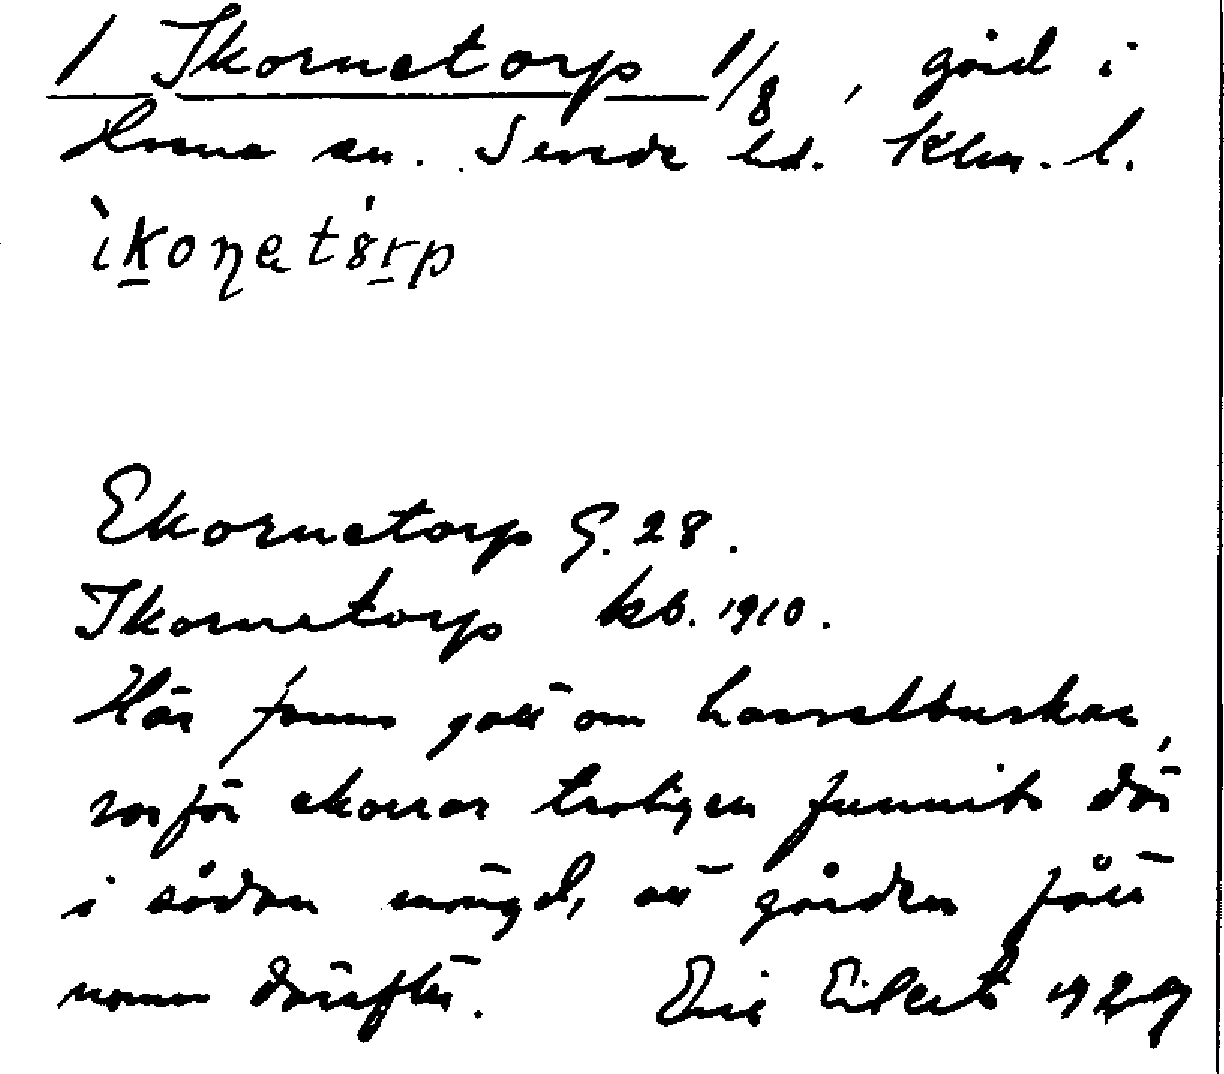 1 Ikornetorp 1/8, gård i
sn. Sevede hd. Klm. l.
ìkoɳetȯrp
Ekornetorp G. 28.
Ikornetorp kb. 1910.
Här finns gott om hasselbuskar,
varför ekorrar troligen funnits där
i sådan mängd, att gården fått
namn därefter. Eric Eilert 1929